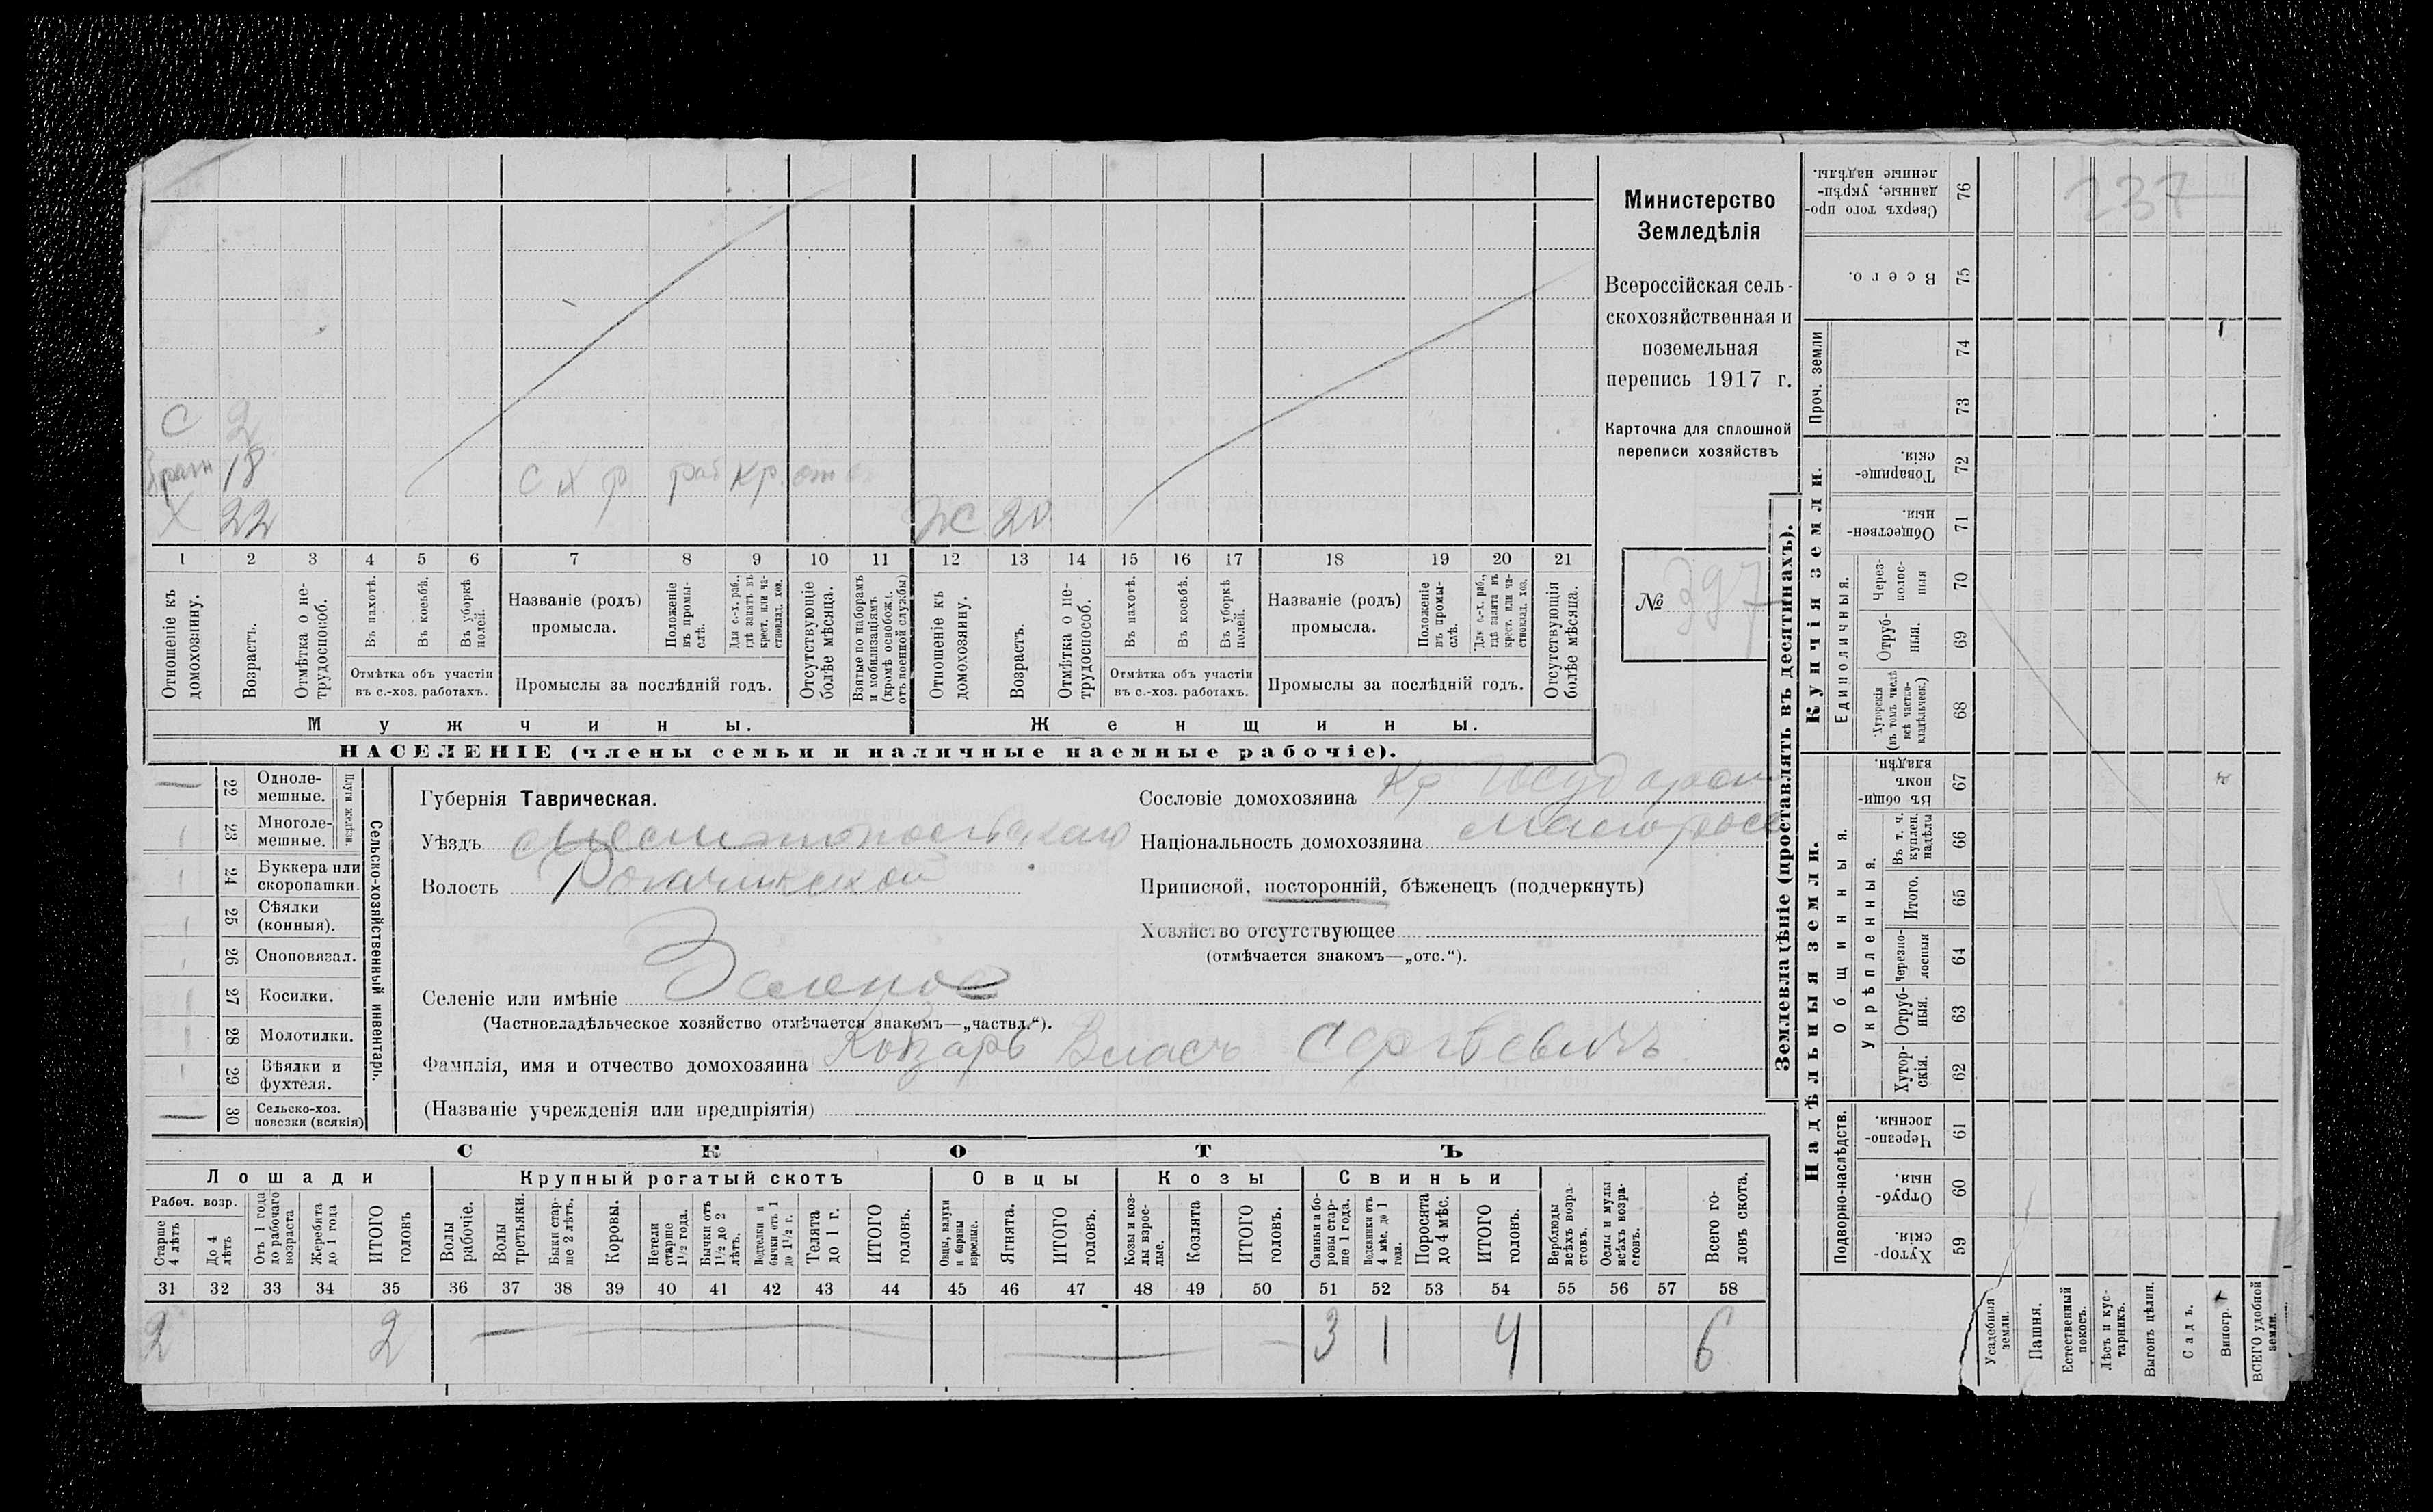 237
Министерство
Земледѣлія
Всероссійская сель-
скохозяйственная и
поземельная
перепись 1917 г.
Карточка для сплошной
переписи хозяйствъ
№ 397
С 2
18 с х р раб кр.
Х 22 Ж 20
1 2 3 4 5 6 7 8 9 10 11 12 13 14 15 16 17 18 19 20 21
Отношеніе къ домохозяину.
Возрастъ.
Отмѣтка о не-трудоспособ.
Въ пахотѣ.
Въ косьбѣ.
Въ уборкѣ полей.
Отмѣтка объ участіи
въ с.-хоз. работахъ.
Названіе (родъ)
промысла.
Положеніе въ промы-слѣ.
Для с.-х. раб., гдѣ занятъ въ крест. или ча-стновлад. хоз.
Промыслы за послѣдній годъ.
Отсутствующіе болѣе мѣсяца.
Взятые по наборамъ и мобилизаціямъ (кромѣ освобожд. отъ военной службы)
Отношеніе къ домохозяину.
Возрастъ.
Отмѣтка о не-трудоспособ.
Въ пахотѣ.
Въ косьбѣ.
Въ уборкѣ полей.
Отмѣтка объ участіи
въ с.-хоз. работахъ.
Названіе (родъ)
промысла.
Положеніе въ промы-слѣ.
Для с.-х. раб., гдѣ занята въ крест. или ча-стновлад. хоз.
Промыслы за послѣдній годъ.
Отсутствующія болѣе мѣсяца.
Мужчины.
Женщины.
НАСЕЛЕНІЕ (члены семьи и наличные наемные рабочіе).
Сельско-хозяйственный инвентарь.
Плуги желѣзн.
22 Одноле-мешные.
23 Многоле-мешные.
24 Буккера или скоропашки.
25 Сѣялки (конныя).
26 Сноповязал.
27 Косилки.
28 Молотилки.
29 Вѣялки и фухтеля.
30 Сельско-хоз. повозки (всякія)
Губернія Таврическая.
Уѣздъ
Волость Рогачикской
Селеніе или имѣніе Зеленое
(Частновладѣльческое хозяйство отмѣчается знакомъ—„частвл.“).
Фамилія, имя и отчество домохозяина Козарь Власъ Сергѣевичъ
(Названіе учрежденія или предпріятія)
Сословіе домохозяина Кр Государст
Національность домохозяина малоросс
Приписной, посторонній, бѣженецъ (подчеркнуть)
Хозяйство отсутствующее
(отмѣчается знакомъ—„отс.“).
СКОТЪ
Лошади
Рабоч. возр.
Старше 4 лѣтъ
До 4 лѣтъ
Отъ 1 года до рабочаго возраста
Жеребята до 1 года
ИТОГО головъ
Крупный рогатый скотъ
Волы рабочіе.
Волы третьяки.
Быки стар-ше 2 лѣтъ.
Коровы.
Нетели старше 1 1/2 года.
Бычки отъ 1 1/2 до 2 лѣтъ.
Подтелки и бычки отъ 1 до 1 1/2 г.
Телята до 1 г.
ИТОГО головъ.
Овцы
Овцы, валухи и бараны взрослые.
Ягнята.
ИТОГО головъ.
Козы
Козы и коз-лы взрос-лые.
Козлята
ИТОГО головъ.
Свиньи
Свиньи и бо-ровы стар-ше 1 года.
Подсвинки отъ 4 мѣс. до 1 года.
Поросята до 4 мѣс.
ИТОГО головъ.
Верблюды всѣхъ возра-стовъ.
Ослы и мулы всѣхъ возра-стовъ.
Всего го-ловъ скота.
31 32 33 34 35 36 37 38 39 40 41 42 43 44 45 46 47 48 49 50 51 52 53 54 55 56 57 58
2 2 3 1 4 6
Землевладѣніе (проставлять въ десятинахъ).
Купчія земли.
Надѣльныя земли.
Сверхъ того про-данные, укрѣп-ленные надѣлы. 76
Всего. 75
Проч. земли
74
73
Товарище-скія. 72
Обществен-ныя. 71
Единоличныя.
Через-полос-ныя 70
Отруб-ныя. 69
Хуторскія (въ томъ числѣ всѣ частно-владѣльческ.) 68
Общинныя.
Въ общин-номъ владѣн. 67
Укрѣпленныя.
Въ т. ч. куплен. надѣлы 66
Итого. 65
Черезпо-лосныя 64
Отруб-ныя. 63
Хутор-скія. 62
Подворно-наслѣдств.
Черезпо-лосныя. 61
Отруб-ныя. 60
Хутор-скія. 59
Усадебныя земли.
Пашня.
Естественный покосъ.
Лѣсъ и кус-тарникъ.
Выгонъ цѣлин.
Садъ.
Виногр.
ВСЕГО удобной земли.